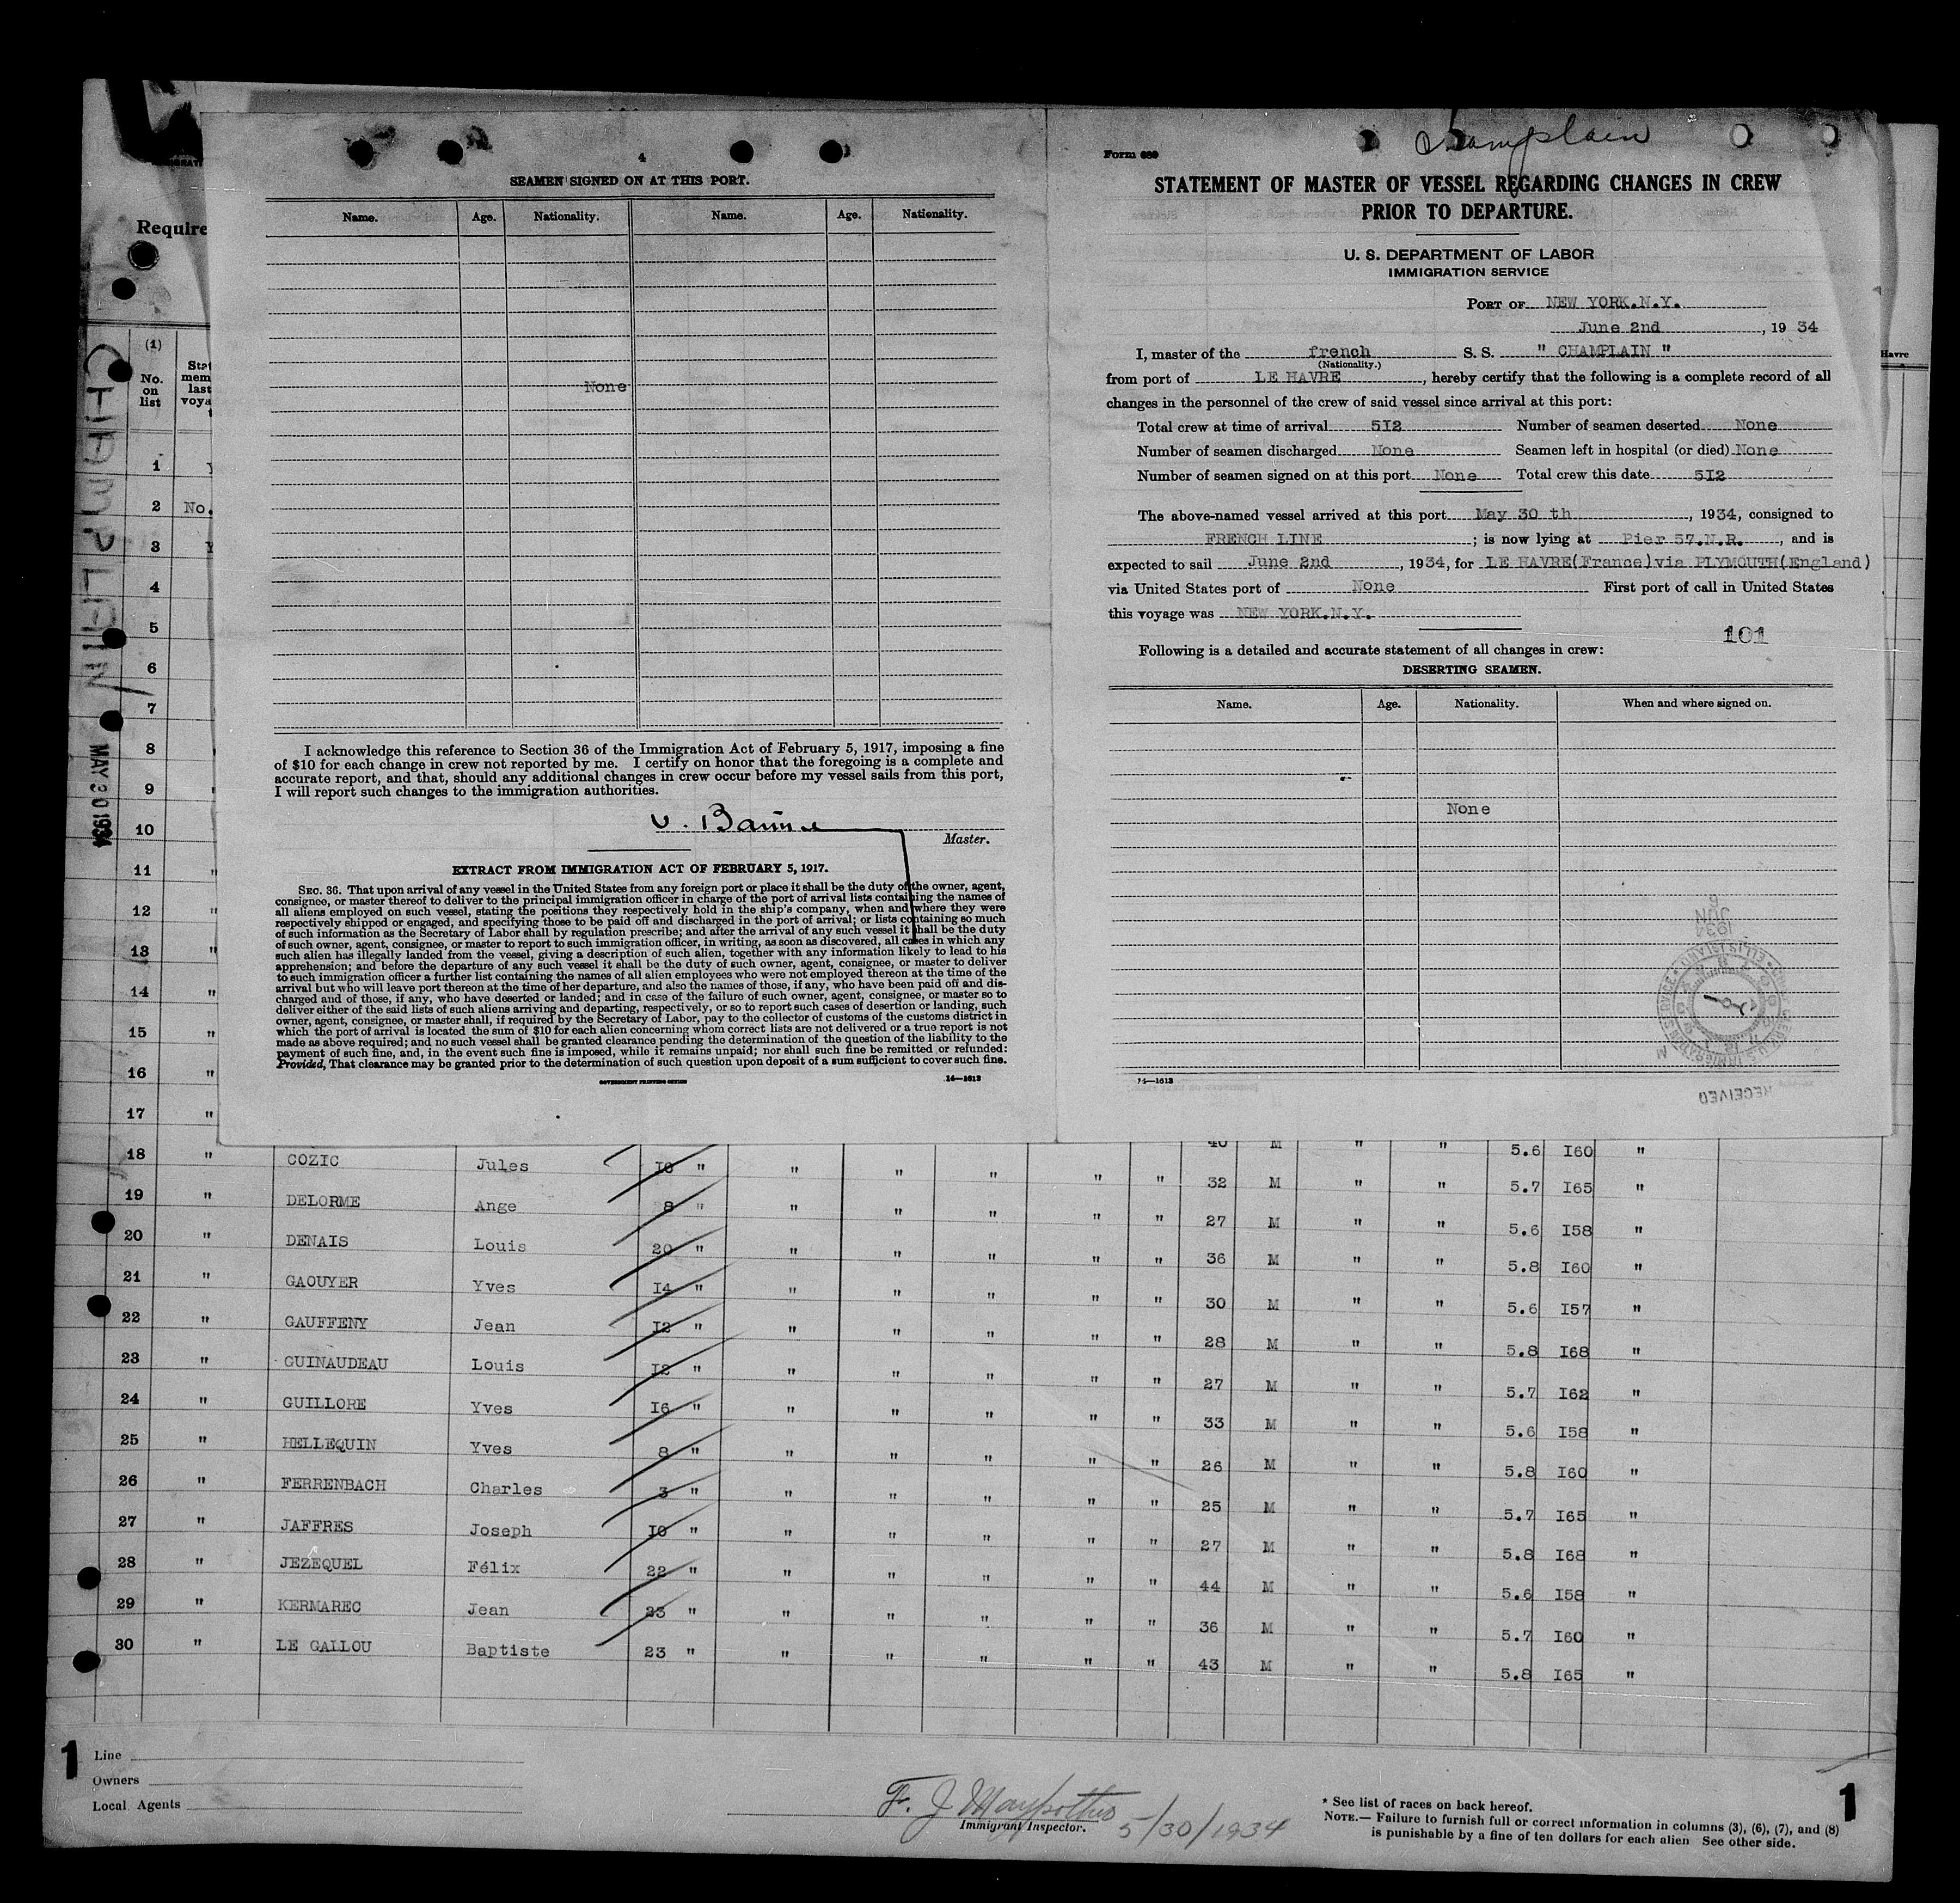 4
SEAMEN SIGNED ON AT THIS PORT.
Name. Age. Nationality. Name. Age. Nationality.
None
I acknowledge this reference to Section 36 of the Immigration Act of February 5, 1917, imposing a fine
of $10 for each change in crew not reported by me. I certify on honor that the foregoing is a complete and
accurate report, and that, should any additional changes in crew occur before my vessel sails from this port,
I will report such changes to the immigration authorities.
Master.
EXTRACT FROM IMMIGRATION ACT OF FEBRUARY 5, 1917.
SEC. 36. That upon arrival of any vessel in the United States from any foreign port or place it shall be the duty of the owner, agent,
consignee, or master thereof to deliver to the principal immigration officer in charge of the port of arrival lists containing the names of
all aliens employed on such vessel, stating the positions they respectively hold in the ship's company, when and where they were
respectively shipped or engaged, and specifying those to be paid off and discharged in the port of arrival; or lists containing so much
of such information as the Secretary of Labor shall by regulation prescribe; and after the arrival of any such vessel it shall be the duty
of such owner, agent, consignee, or master to report to such immigration officer, in writing, as soon as discovered, all cases in which any
such alien has illegally landed from the vessel, giving a description of such alien, together with any information likely to lead to his
apprehension; and before the departure of any such vessel it shall be the duty of such owner, agent, consignee, or master to deliver
to such immigration officer a further list containing the names of all alien employees who were not employed thereon at the time of the
arrival but who will leave port thereon at the time of her departure, and also the names of those, if any, who have been paid off and dis-
charged and of those, if any, who have deserted or landed; and in case of the failure of such owner, agent, consignee, or master so to
deliver either of the said lists of such aliens arriving and departing, respectively, or so to report such cases of desertion or landing, such
owner, agent, consignee, or master shall, if required by the Secretary of Labor, pay to the collector of customs of the customs district in
which the port of arrival is located the sum of $10 for each alien concerning whom correct lists are not delivered or a true report is not
made as above required; and no such vessel shall be granted clearance pending the determination of the question of the liability to the
payment of such fine, and, in the event such fine is imposed, while it remains unpaid; nor shall such fine be remitted or refunded:
Provided, That clearance may be granted prior to the determination of such question upon deposit of a sum sufficient to cover such fine.
GOVERNMENT PRINTING OFFICE 14—1613
Champlain
Form 689
STATEMENT OF MASTER OF VESSEL REGARDING CHANGES IN CREW
PRIOR TO DEPARTURE.
U. S. DEPARTMENT OF LABOR
IMMIGRATION SERVICE
PORT OF NEW YORK.N.Y.
June 2nd, 19 34
I, master of the french S. S. " CHAMPLAIN "
(Nationality.)
from port of LE HAVRE, hereby certify that the following is a complete record of all
changes in the personnel of the crew of said vessel since arrival at this port:
Total crew at time of arrival 5I2 Number of seamen deserted None
Number of seamen discharged None Seamen left in hospital (or died) None
Number of seamen signed on at this port None Total crew this date 5I2
The above-named vessel arrived at this port May 30 th, 1934, consigned to
FRENCH LINE; is now lying at Pier 57.N.R., and is
expected to sail June 2nd, 1934, for LE HAVRE(France)via PLYMOUTH(England)
via United States port of None First port of call in United States
this voyage was NEW YORK.N.Y.
101
Following is a detailed and accurate statement of all changes in crew:
DESERTING SEAMEN.
Name. Age. Nationality. When and where signed on.
None
14—1613
RECEIVED
JUN
1934
Havre
Require
CHAMPLAIN
MAY 30 1934
(1)
No.
on
list
1
2 No.
3
4
5
6
7
8
9
10
11 "
12 "
13 "
14 "
15 "
16 "
17 "
40 M " " 5.6 I60 "
18 " COZIC Jules I0 " " " " " " 32 M " " 5.7 I65 "
19 " DELORME Ange 8 " " " " " " 27 M " " 5.6 I58 "
20 " DENAIS Louis 20 " " " " " " 36 M " " 5.8 I60 "
21 " GAOUYER Yves I4 " " " " " " 30 M " " 5.6 I57 "
22 " GAUFFENY Jean I2 " " " " " " 28 M " " 5.8 I68 "
23 " GUINAUDEAU Louis I2 " " " " " " 27 M " " 5.7 I62 "
24 " GUILLORE Yves I6 " " " " " " 33 M " " 5.6 I58 "
25 " HELLEQUIN Yves 8 " " " " " " 26 M " " 5.8 I60 "
26 " FERRENBACH Charles 3 " " " " " " 25 M " " 5.7 I65 "
27 " JAFFRES Joseph I0 " " " " " " 27 M " " 5.8 I68 "
28 " JEZEQUEL Félix 22 " " " " " " 44 M " " 5.6 I58 "
29 " KERMAREC Jean 23 " " " " " " 36 M " " 5.7 I60 "
30 " LE GALLOU Baptiste 23 " " " " " " 43 M " " 5.8 I65 "
1
Line
Owners
Local Agents
F. J.
Immigrant Inspector. 5/30/1934
* See list of races on back hereof.
NOTE.— Failure to furnish full or correct information in columns (3), (6), (7), and (8)
is punishable by a fine of ten dollars for each alien See other side.
1